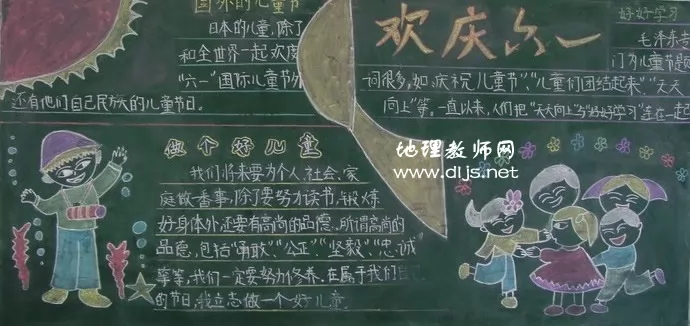 国外的儿童节
日本的儿童,除了
和全世界一起欢度
"六一"国际儿童节外
还有他们自己民族的儿童节日。
欢庆六一
好好学习
毛泽东
门为儿童节题
词很多,如,庆祝儿童节","儿童们团结起来","天天
向上"等。一直以来,人们把"天天向上"与"好好学习"连在一起
做个好儿童
我们将来要为个人,社会,家
庭做番事,除了要努力读书,锻炼
好身体外还要有高尚的品德,所谓高尚的
品德,包括"勇敢"、"公正"、"坚毅"、"忠诚"
等,我们一定要努力修养,在属于我们自己
的节日,我立志做一个好儿童
地理教师网
www.dljs.net